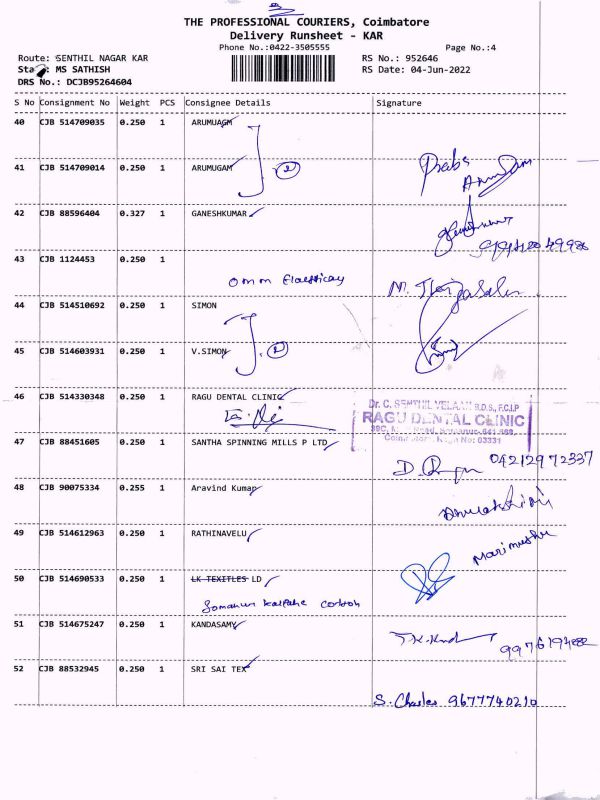 THE PROFESSIONAL COURIERS, Coimbatore
Delivery Runsheet - KAR
Phone No.:0422-3505555
Page No.:4
Route: SENTHIL NAGAR KAR
RS No.: 952646
MS SATHISH
RS Date: 04-Jun-2022
DRS No.: DCJB95264604
S No Consignment No Weight PCS Consignee Details Signature
40 CJB 514709035 0.250 1 ARUMUAGM
41 CJB 514709014 0.250 1 ARUMUGAM
42 CJB 88596404 0.327 1 GANESHKUMAR
43 CJB 1124453 0.250 1
omm
44 CJB 514510692 0.250 1 SIMON
45 CJB 514603931 0.250 1 V.SIMON
46 CJB 514330348 0.250 1 RAGU DENTAL CLINIC
RAGU DENTAL CLINIC
47 CJB 88451605 0.250 1 SANTHA SPINNING MILLS P LTD
04212972337
48 CJB 90075334 0.255 1 Aravind Kumar
49 CJB 514612963 0.250 1 RATHINAVELU
50 CJB 514690533 0.250 1 LK TEXITLES LD
51 CJB 514675247 0.250 1 KANDASAMY
52 CJB 88532945 0.250 1 SRI SAI TEX
S. Charles 9677740210